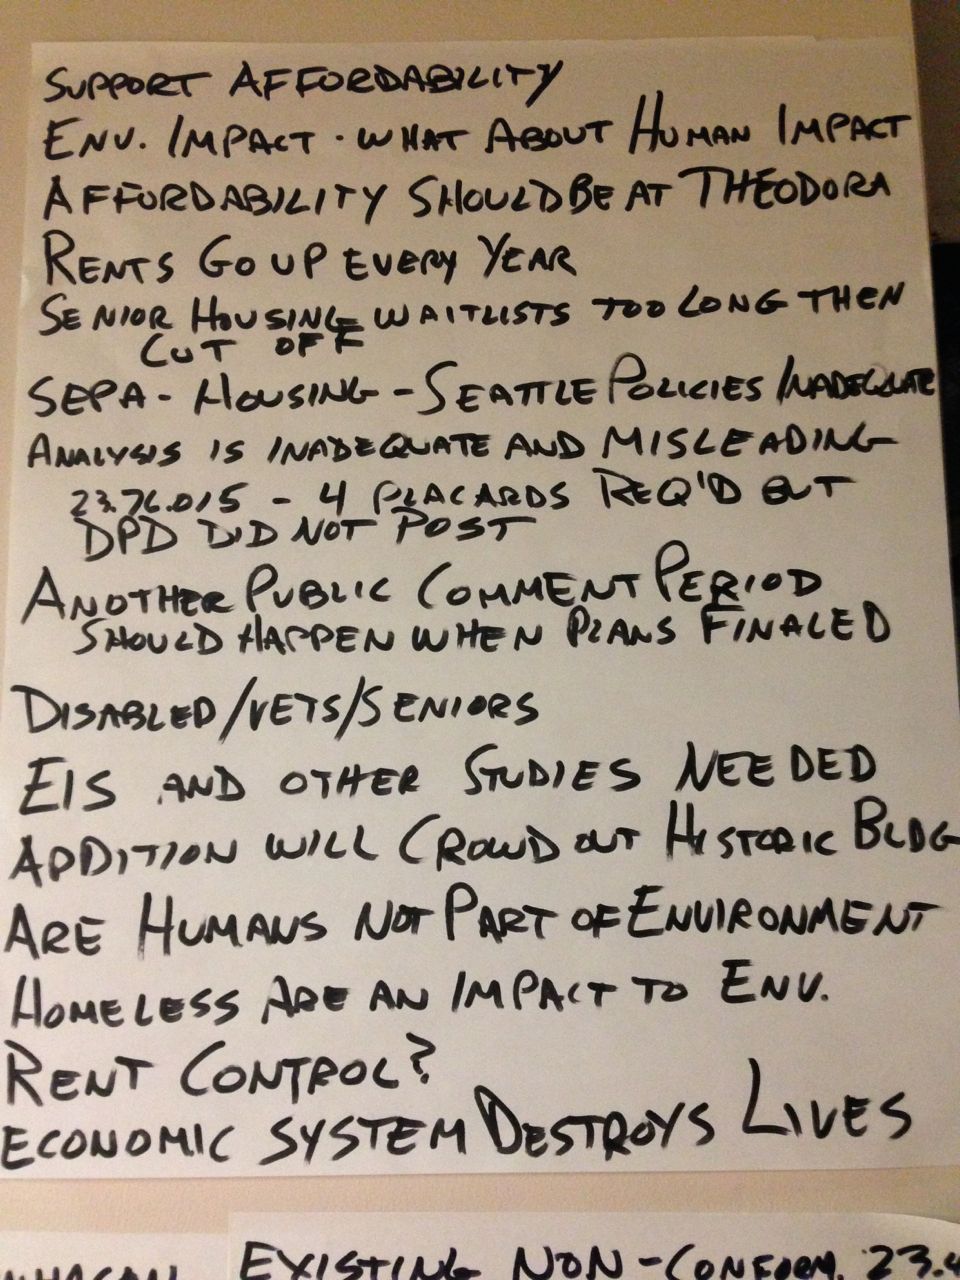 SUPPORT AFFORDABILITY
ENV. IMPACT · WHAT ABOUT HUMAN IMPACT
AFFORDABILITY SHOULD BE AT THEODORA
RENTS GO UP EVERY YEAR
SENIOR HOUSING WAITLISTS TOO LONG THEN
CUT OFF
SEPA - HOUSING - SEATTLE POLICIES INADEQUATE
ANALYSIS IS INADEQUATE AND MISLEADING
23.76.015 - 4 PLACARDS REQ'D BUT
DPD DID NOT POST
ANOTHER PUBLIC COMMENT PERIOD
SHOULD HAPPEN WHEN PLANS FINALED
DISABLED/VETS/SENIORS
EIS AND OTHER STUDIES NEEDED
ADDITION WILL CROWD OUT HISTORIC BLDG
ARE HUMANS NOT PART OF ENVIRONMENT
HOMELESS ARE AN IMPACT TO ENV.
RENT CONTROL?
ECONOMIC SYSTEM DESTROYS LIVES
EXISTING NON-CONFORM. 23.4